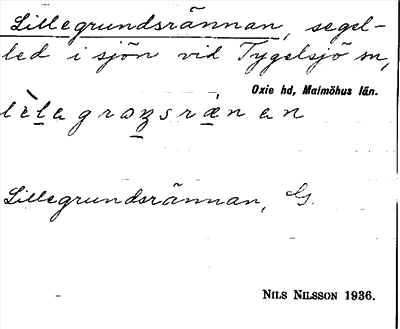 Lillegrundsrännan, segel-
led i sjön vid Tygelsjö sn,
Oxie hd, Malmöhus län.
Lillegrundsrännan,
NILS NILSSON 1936.